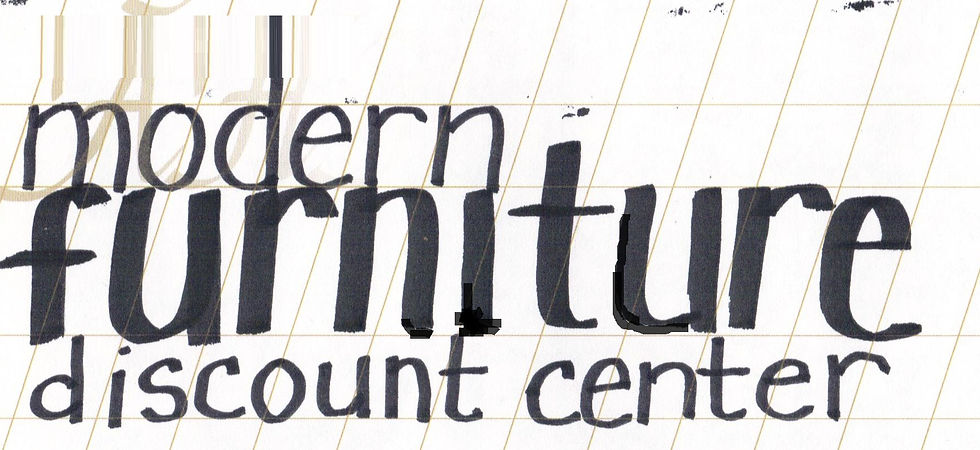 modern
furniture
discount center